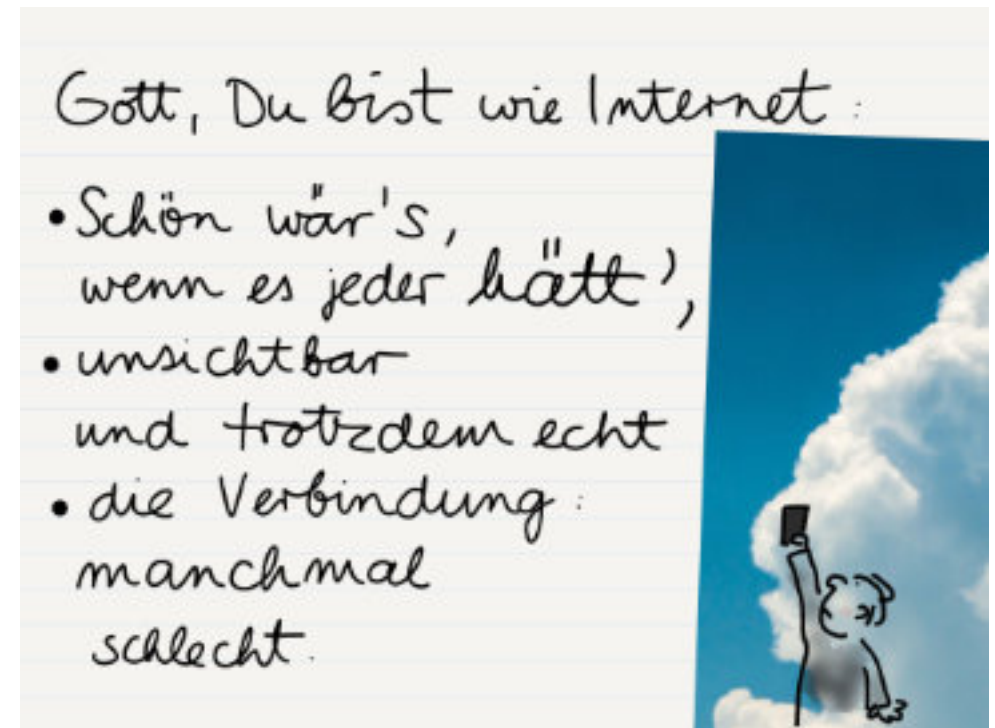 Gott, Du bist wie Internet:
• Schön wär's,
wenn es jeder hätt',
• unsichtbar
und trotzdem echt
• die Verbindung:
manchmal
schlecht.